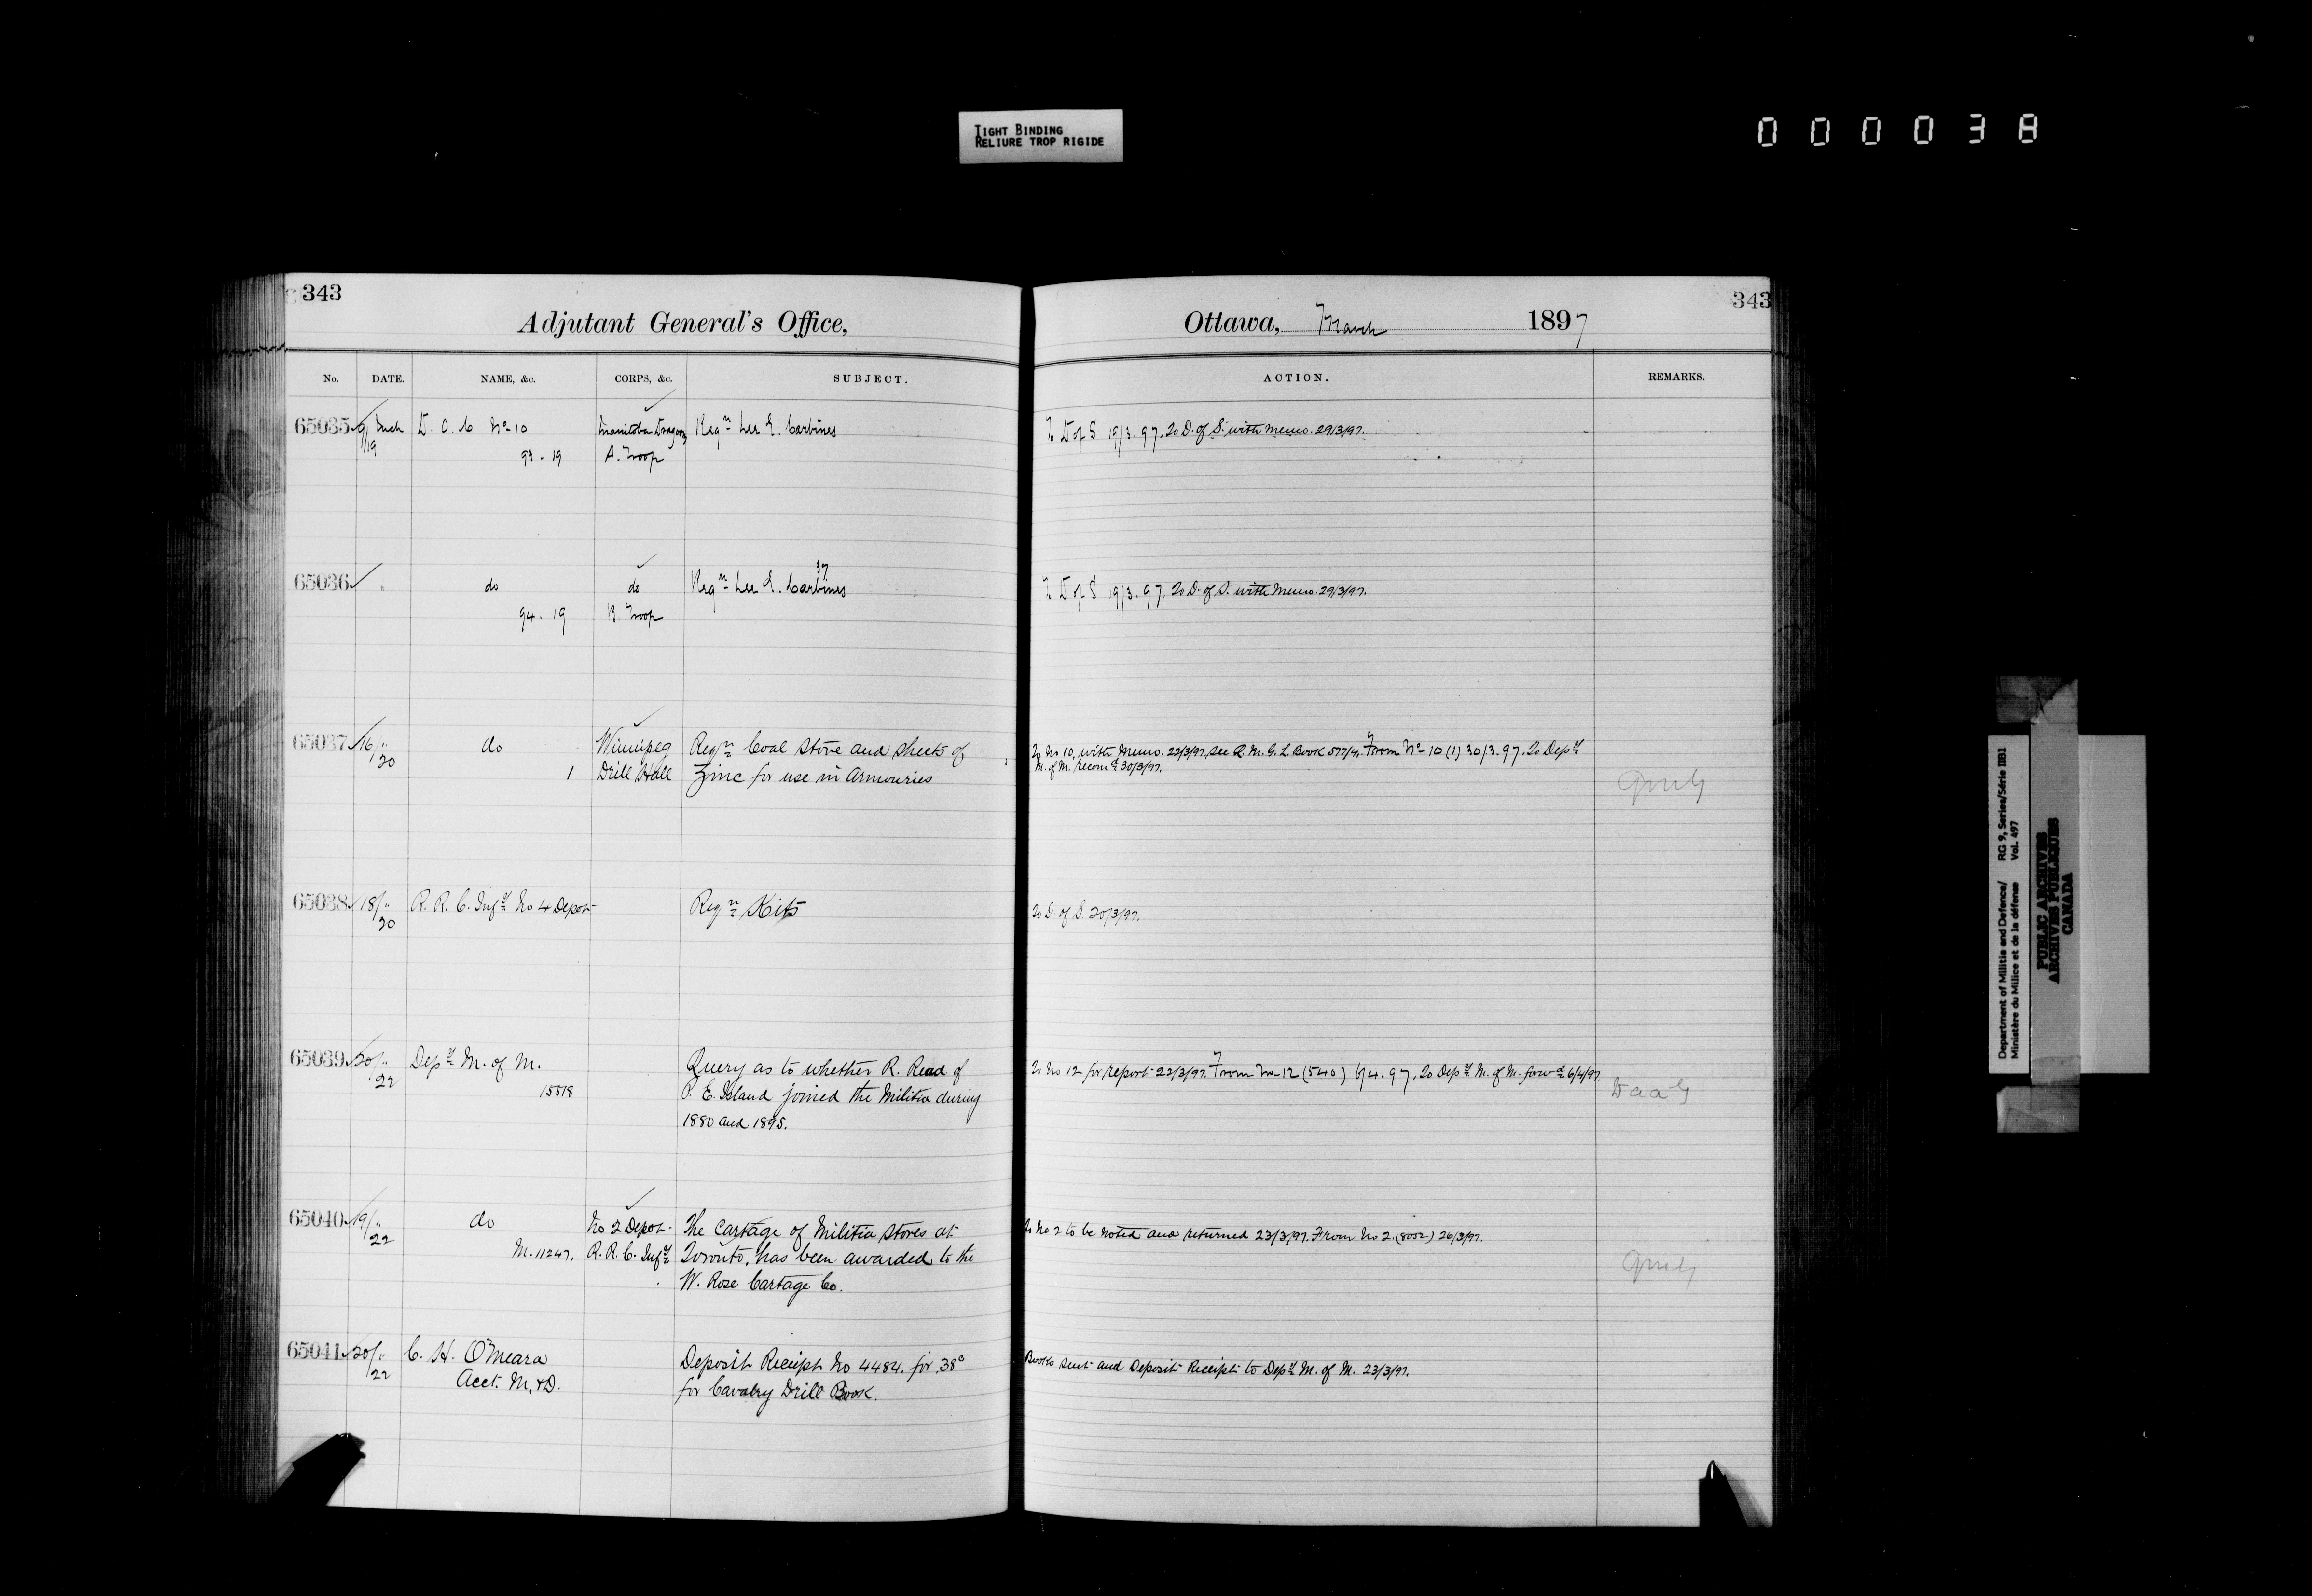 TIGHT BINDING
RELIURE TROP RIGIDE
000038
343
Adjutant General's Office,
No. DATE. NAME, &c. CORPS, &c. SUBJECT.
65035 Mch 19 D. O. C No 10 Manitoba Dragoons Reqn Lee E. Carbines
93 - 19 A. Troop
65036 " do do Reqn Lee E. Carbines
94 - 19 B. Troop
65037 16/" 20 do Winnipeg Reqn Coal Stove and sheets of
1 Drill Hall Zinc for use in Armouries
65038 18/" 20 R. R. C. Infy No 4 Depot Reqn Kits
65039 20/" 22 Depy M. of M. Query as to whether R. Read of
15518 P. E. Island joined the Militia during
1880 and 1895.
65040 19/" 22 do No 2 Depot The Cartage of Militia Stores at
M. 11247. R. R. C. Infy Toronto, has been awarded to the
W. Rose Cartage Co.
65041 20/" 22 C. H. O'Meara Deposit Receipt No 4484. for .38c
Acct. M. & D. for Cavalry Drill Book.
343
Ottawa, March 1897
ACTION. REMARKS.
To D of S 19/3.97. To D. of S. with memo. 29/3/97.
To D of S 19/3.97. To D. of S. with Memo. 29/3/97.
To No 10, with Memo. 22/3/97, see Q. M. G. L Book 577/4. From No 10 (1) 30/3.97. To Depy
M. of M. recomd 30/3/97.
To D. of S. 20/3/97.
To No 12 for report 22/3/97. From No 12 (540) 6/4.97. To Depy M. of M. forwd 6/4/97.
D a a G
To No 2 to be noted and returned 23/3/97. From No 2. (8052) 26/3/97.
Books sent and Deposit Receipt to Depy M. of M. 23/3/97.
Department of Militia and Defence/ RG 9, Series/Série IIB1
Ministère du Milice et de la défense Vol. 497
PUBLIC ARCHIVES
ARCHIVES PUBLIQUES
CANADA